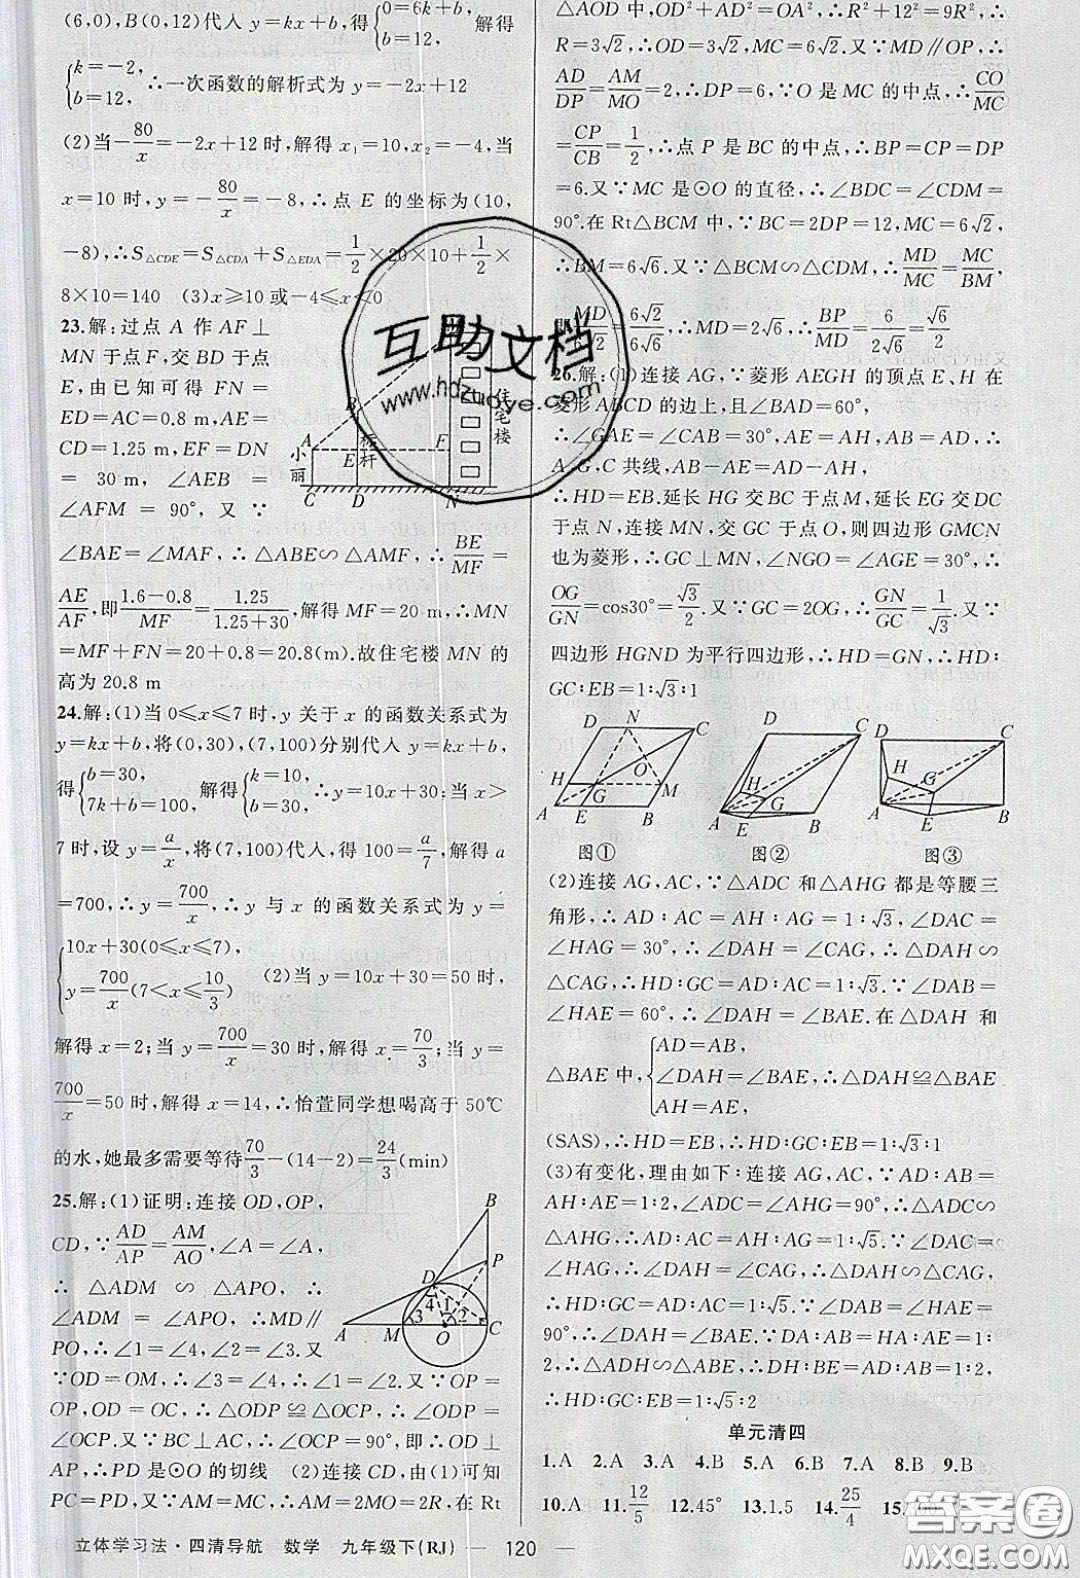 (6,0),B(0,12)代入 y=kx+b,得{0=6k+b, b=12, 解得
{k=-2, b=12, ∴一次函数的解析式为 y=-2x+12
(2)当-80/x=-2x+12时,解得 x₁=10,x₂=-4,当
x=10时,-80/x=-8,∴点 E 的坐标为(10,
-8),∴S△CDE=S△CDA+S△EDA=1/2×20×10+1/2×
8×10=140 (3)x≥10或-4≤x<0
23.解:过点 A 作 AF⊥
MN于点F,交 BD于点
E,由已知可得 FN=
ED=AC=0.8 m,AE=
CD=1.25 m,EF=DN
= 30 m,∠AEB =
∠AFM = 90°,又∵
∠BAE=∠MAF,∴△ABE∽△AMF,∴BE/MF=
AE/AF,即(1.6-0.8)/MF=1.25/(1.25+30),解得 MF=20 m,∴MN
=MF+FN=20+0.8=20.8(m).故住宅楼 MN 的
高为20.8 m
B
A
小丽
E
标杆
F
住宅楼
C
D
N
24.解:(1)当0≤x≤7时,y 关于 x 的函数关系式为
y=kx+b,将(0,30),(7,100)分别代入 y=kx+b,
得{b=30, 7k+b=100, 解得{k=10, b=30, ∴y=10x+30;当 x>
7时,设 y=a/x,将(7,100)代入,得 100=a/7,解得 a
=700,∴y=700/x,∴y 与 x 的函数关系式为 y=
{10x+30(0≤x≤7),
y=700/x(7<x≤10/3) (2)当 y=10x+30=50时,
解得 x=2;当 y=700/x=30时,解得 x=70/3;当 y=
700/x=50时,解得 x=14,∴怡萱同学想喝高于50℃
的水,她最多需要等待70/3-(14-2)=24/3(min)
25.解:(1)证明:连接OD,OP,
CD,∵AD/AP=AM/AO,∠A=∠A,
∴△ADM∽△APO,∴
∠ADM=∠APO,∴MD∥
PO,∴∠1=∠4,∠2=∠3.又
∵OD=OM,∴∠3=∠4,∴∠1=∠2.又∵OP=
OP,OD=OC,∴△ODP≌△OCP,∴∠ODP=
∠OCP.又∵BC⊥AC,∴∠OCP=90°,即 OD⊥
AP,∴PD是⊙O的切线 (2)连接CD,由(1)可知
PC=PD,又∵AM=MC,∴AM=2MO=2R,在 Rt
B
P
D
4
1
3
2
A
M
O
C
△AOD中,OD²+AD²=OA²,∴R²+12²=9R²,∴
R=3√2,∴OD=3√2,MC=6√2.又∵MD∥OP,∴
AD/DP=AM/MO=2,∴DP=6,∵O是MC的中点,∴CO/MC
=CP/CB=1/2,∴点 P 是BC的中点,∴BP=CP=DP
=6.又∵MC是⊙O的直径,∴∠BDC=∠CDM=
90°.在 Rt△BCM 中,∵BC=2DP=12,MC=6√2
∴BM=6√6.又∵△BCM∽△CDM,∴MD/MC=MC/BM,
即MD/6√2=6√2/6√6,∴MD=2√6,∴BP/MD=6/2√6=√6/2
26.解:(1)连接AG,∵菱形AEGH的顶点E、H在
菱形ABCD的边上,且∠BAD=60°,
∴∠GAE=∠CAB=30°,AE=AH,AB=AD,∴
A,G,C共线,∴AB-AE=AD-AH,
∴HD=EB.延长HG交BC于点M,延长EG交DC
于点N,连接MN,交GC于点O,则四边形GMCN
也为菱形,∴GC⊥MN,∠NGO=∠AGE=30°,∴
OG/GN=cos30°=√3/2.又∵GC=2OG,∴GN/GC=1/√3.又∵
四边形HGND为平行四边形,∴HD=GN,∴HD:
GC:EB=1:√3:1
D N C
H O M
G
A E B
图①
D C
H
G
A E B
图②
D C
H
G
A E B
图③
(2)连接AG,AC,∵△ADC和△AHG都是等腰三
角形,∴AD:AC=AH:AG=1:√3,∠DAC=
∠HAG=30°,∴∠DAH=∠CAG,∴△DAH∽
△CAG,∴HD:GC=AD:AC=1:√3.∵∠DAB=
∠HAE=60°,∴∠DAH=∠BAE.在△DAH和
△BAE中,{AD=AB, ∠DAH=∠BAE, AH=AE, ∴△DAH≌△BAE
(SAS),∴HD=EB,∴HD:GC:EB=1:√3:1
(3)有变化,理由如下:连接AG,AC,∵AD:AB=
AH:AE=1:2,∠ADC=∠AHG=90°,∴△ADC∽
△AHG,∴AD:AC=AH:AG=1:√5.∵∠DAC
=∠HAG,∴∠DAH=∠CAG,∴△DAH∽△CAG,
∴HD:GC=AD:AC=1:√5.∵∠DAB=∠HAE=
90°,∴∠DAH=∠BAE.又∵DA:AB=HA:AE=1:
2,∴△ADH∽△ABE,∴DH:BE=AD:AB=1:2,
∴HD:GC:EB=1:√5:2
单元清四
1.A 2.A 3.A 4.B 5.A 6.B 7.A 8.B 9.B
10.A 11.12/5 12.45° 13.1.5 14.25/4 15.
立体学习法·四清导航 数学 九年级下(RJ) — 120 —
互助文档
www.hdzuoye.com
答案圈
MXQE.COM